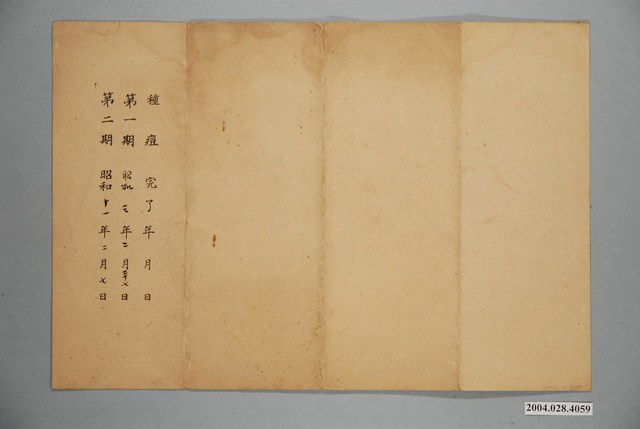 種痘完了年月日
第一期 昭和三年二月廿七日
第二期 昭和十一年二月七日
2004.028.4059